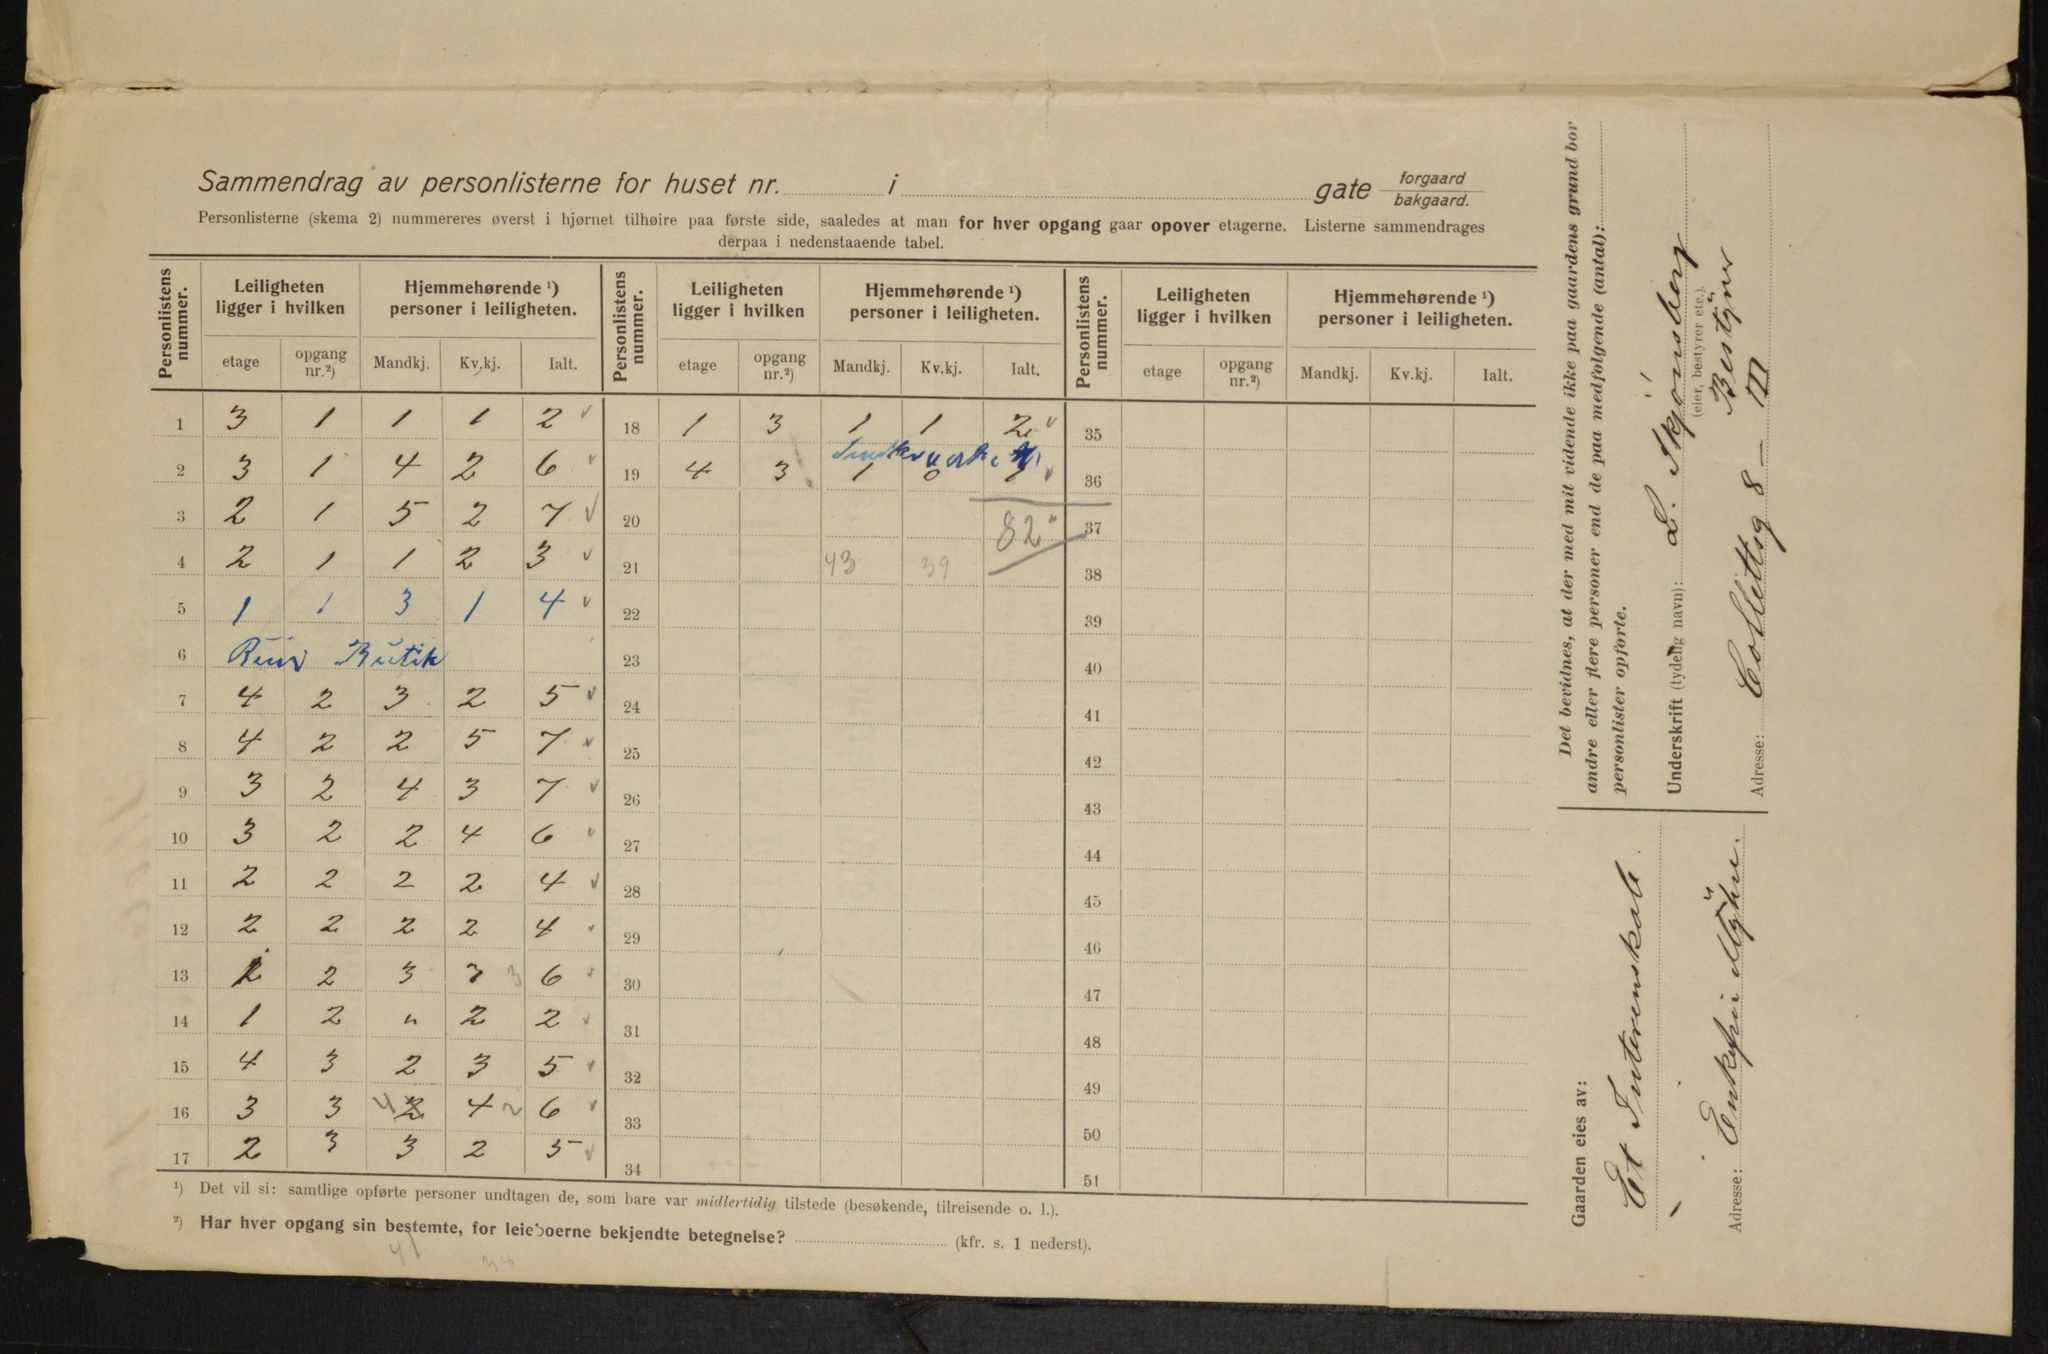 Sammendrag av personlisterne for huset nr. i gate forgaard bakgaard.
Personlisterne (skema 2) nummereres øverst i hjørnet tilhøire paa første side, saaledes at man for hver opgang gaar opover etagerne. Listerne sammendrages
derpaa i nedenstaaende tabel.
Personlistens nummer. Leiligheten ligger i hvilken Hjemmehørende ¹) personer i leiligheten. Personlistens nummer. Leiligheten ligger i hvilken Hjemmehørende ¹) personer i leiligheten. Personlistens nummer. Leiligheten ligger i hvilken Hjemmehørende ¹) personer i leiligheten.
etage opgang nr.²) Mandkj. Kv.kj. Ialt. etage opgang nr.²) Mandkj. Kv.kj. Ialt. etage opgang nr.²) Mandkj. Kv.kj. Ialt.
1 3 1 1 1 2 18 1 3 1 1 2 35
2 3 1 4 2 6 19 4 3 1 0 1 36
3 2 1 5 2 7 20 82 37
4 2 1 1 2 3 21 43 39 38
5 1 1 3 1 4 22 39
6 Butik 23 40
7 4 2 3 2 5 24 41
8 4 2 2 5 7 25 42
9 3 2 4 3 7 26 43
10 3 2 2 4 6 27 44
11 2 2 2 2 4 28 45
12 2 2 2 2 4 29 46
13 1 2 3 3 3 6 30 47
14 1 2 " 2 2 31 48
15 4 3 2 3 5 32 49
16 3 3 4 2 4 2 6 33 50
17 2 3 3 2 5 34 51
¹) Det vil si: samtlige opførte personer undtagen de, som bare var midlertidig tilstede (besøkende, tilreisende o. l.).
²) Har hver opgang sin bestemte, for leieboerne bekjendte betegnelse? (kfr. s. 1 nederst).
Det bevidnes, at der med mit vidende ikke paa gaardens grund bor
andre eller flere personer end de paa medfølgende (antal):
personlister opførte.
Underskrift (tydelig navn): L. Skjønsberg
(eier, bestyrer etc.).
Bestyrer
Adresse: Collettsg 8 – III
Gaarden eies av:
Et Interenskab
Adresse: Enkefru Myhre.